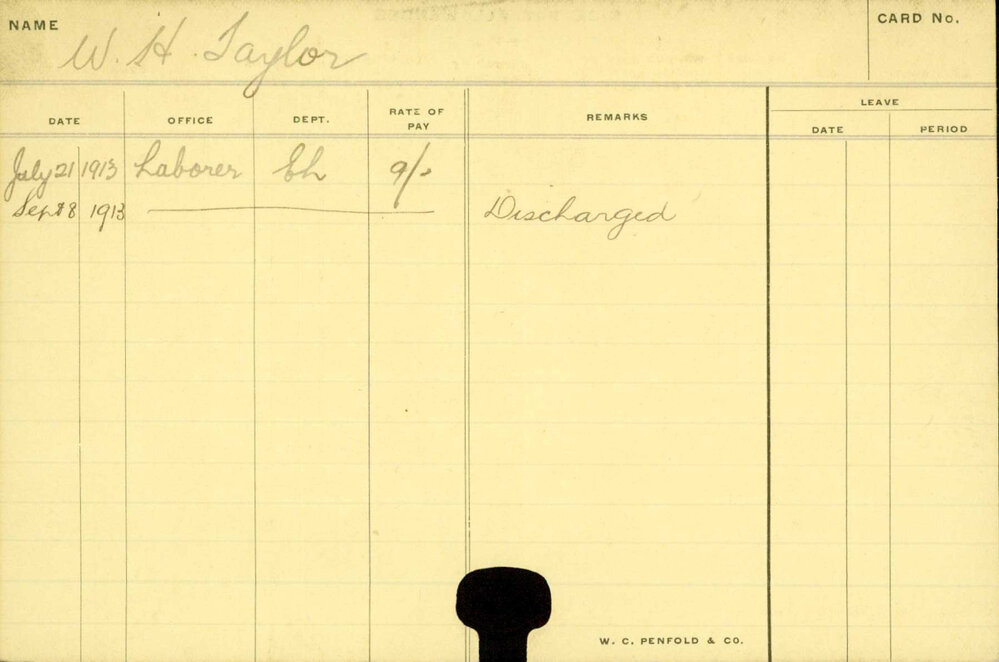 NAME W. H. Taylor CARD No.
DATE OFFICE DEPT. RATE OF PAY REMARKS LEAVE
DATE PERIOD
July 21 1913 Laborer Eh 9/-
Sept 8 1913 Discharged
W. C. PENFOLD & CO.